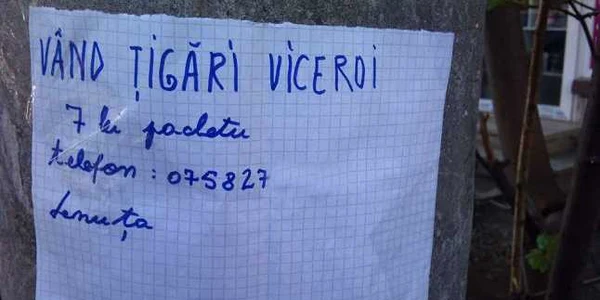 VÂND ȚIGĂRI VICEROI
7 lei pachetu
telefon: 075827
Lenuța